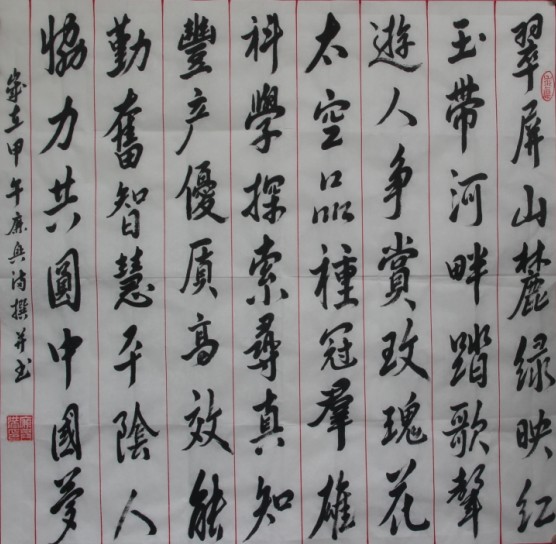 翠屏山麓绿映红
玉帶河畔踏歌聲
遊人争賞玫瑰花
太空品種冠羣雄
科學探索尋真知
豐产優质高效能
勤奮智慧平陰人
協力共圓中國夢
歲在甲午廉興海撰并书